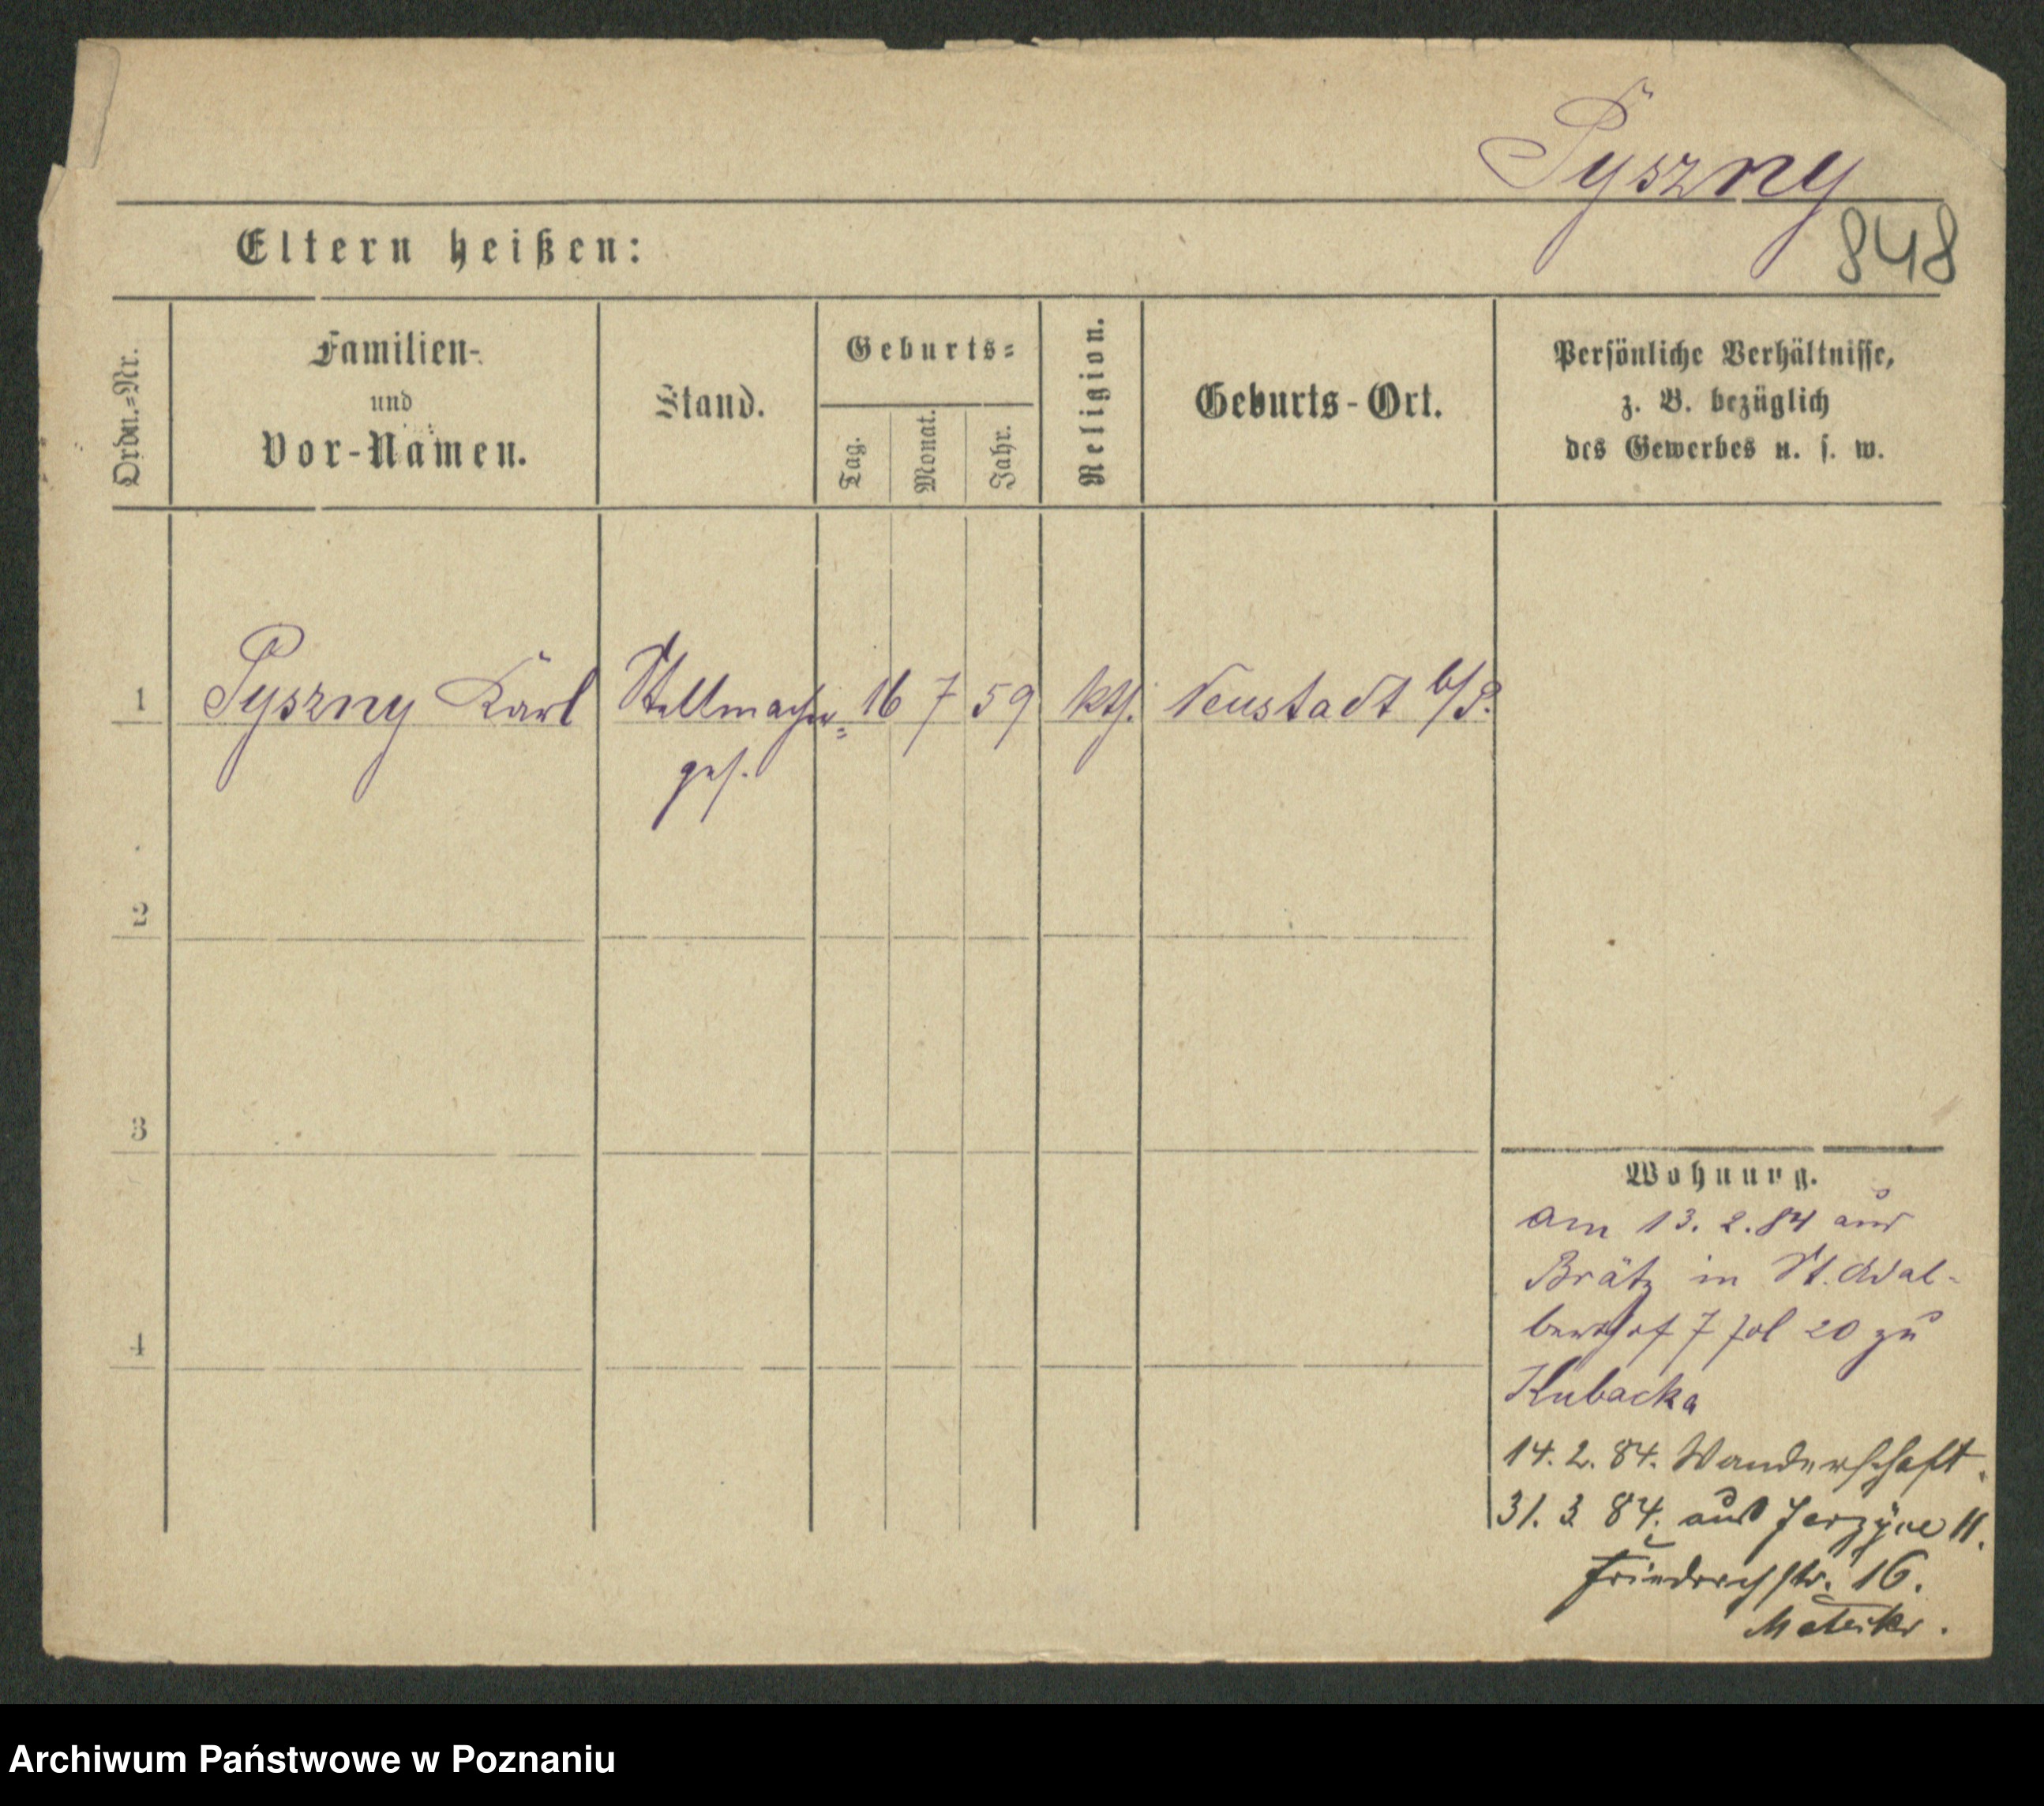 Pyszny
848
Eltern heißen:
Ordn.=Nr.
Familien-
und
Vor-Namen.
Stand.
Geburts=
Tag.
Monat.
Jahr.
Religion.
Geburts-Ort.
Persönliche Verhältnisse,
z. B. bezüglich
des Gewerbes u. s. w.
1 Pyszny Karl Stellmacher= 16 7 59 kth. Neustadt b/P.
ges.
2
3
4
Wohnung.
Am 13. 2. 84 aus
Brätz in St. Adal-
berthof 7 fol 20 zu
Kubacka
14. 2. 84. Wanderschaft.
31. 3 84. aus 11.
Friedrichstr. 16.
Archiwum Państwowe w Poznaniu